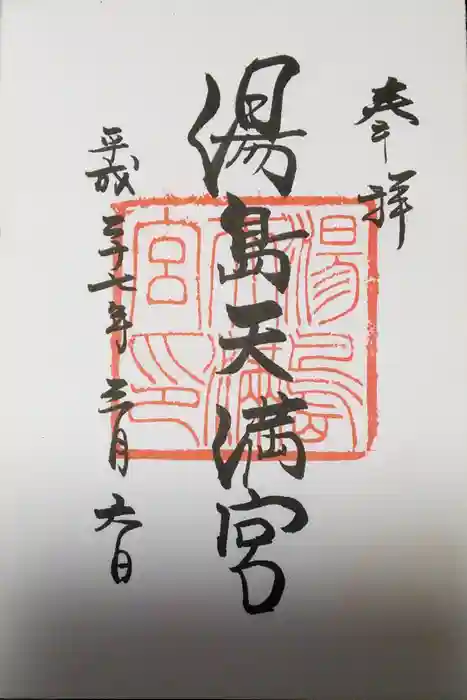 奉拝
湯島天満宮
平成二十七年 三月 六日
湯島
天満
宮印